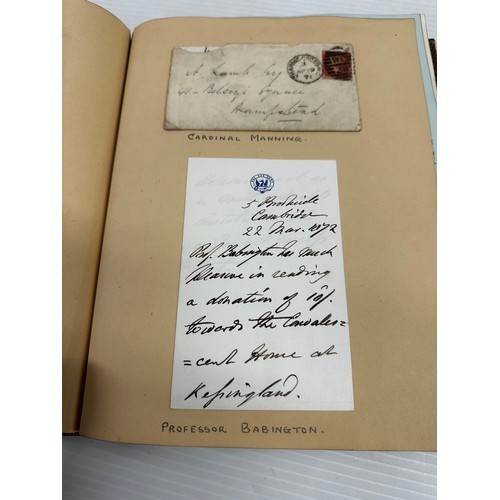 A. Lamb Esq
Hampstead
CARDINAL MANNING.
5 Brookside
Cambridge
22 Mar. 1872
Prof. Babington has much
pleasure in sending
a donation of 10/.
towards the Convales=
=cent Home at
Kessingland.
PROFESSOR BABINGTON.